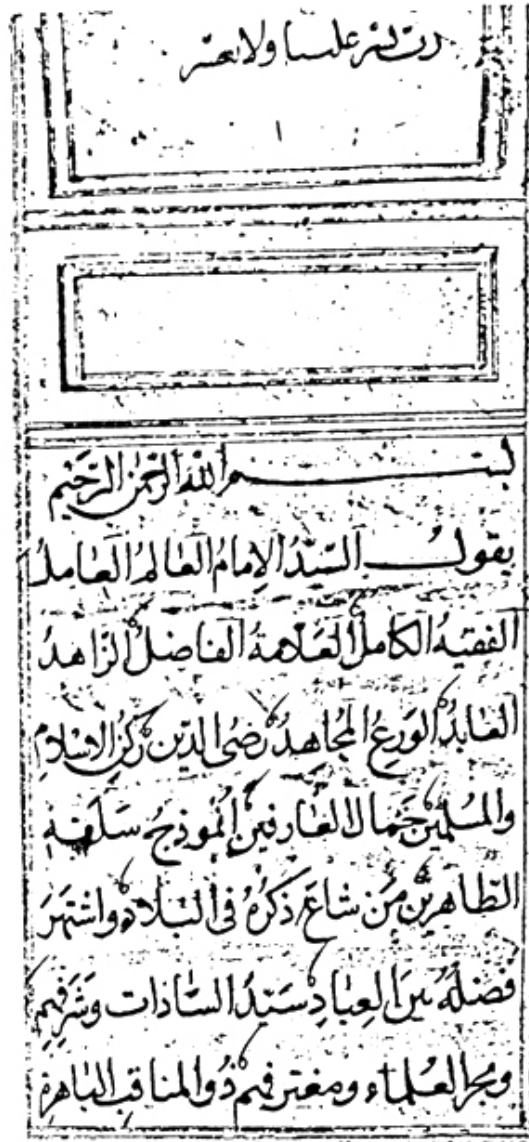 رب يسر علينا ولا تعسر
بسم الله الرحمن الرحيم
يقول السَّيِّدُ الإمامُ العالِمُ العاملُ
الفقيهُ الكاملُ العَلّامةُ الفاضلُ الزّاهدُ
العابدُ الوَرِعُ المُجاهِدُ رضىُ الدّينِ رُكنُ الاسْلامِ
والمُسلمينَ جَمالُ العارفينَ اُنموذجُ سَلَفِهِ
الطّاهِرينَ مَن شاعَ ذِكرُهُ فى البِلادِ واشتَهَرَ
فَضلُهُ بَينَ العِبادِ سَيّدُ السّاداتِ وشَرَفُهُم
العُلماءِ ومغترفهم ذُو المناقبِ الباهرةِ